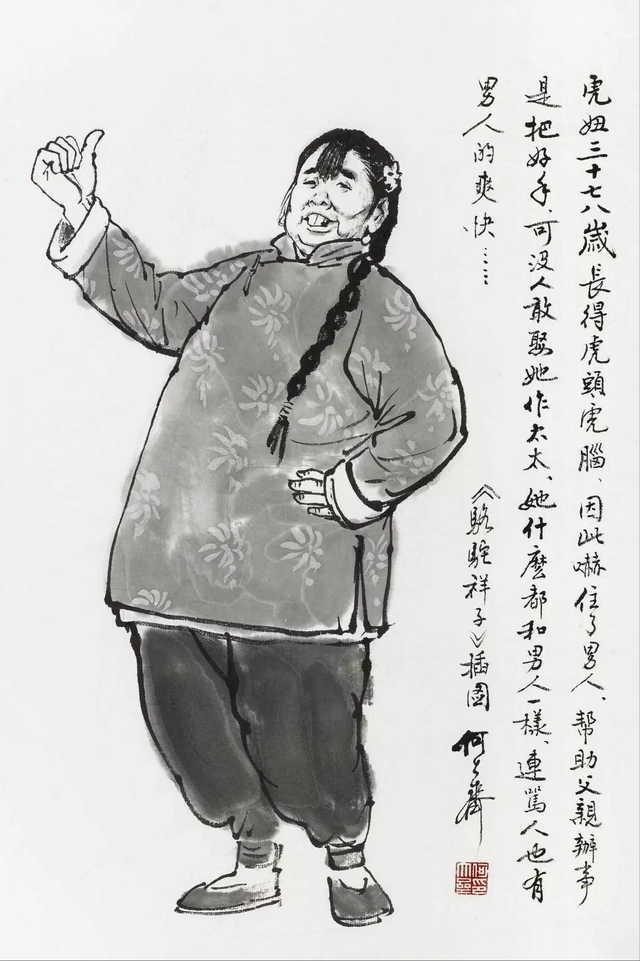 虎妞三十七八歲長得虎頭虎腦、因此嚇住了男人、帮助父親辦事
是把好手、可没人敢娶她作太太、她什麽都和男人一樣、連罵人也有
男人的爽快……
《駱駝祥子》插图